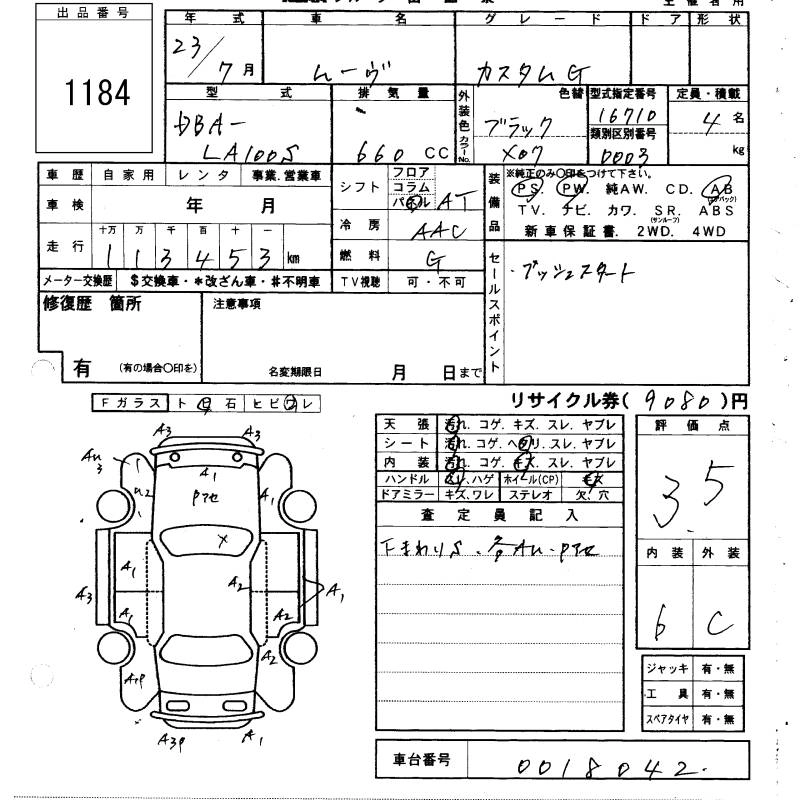 出品番号
1184
年式 車名 グレード ドア 形状
23/7月 ムーヴ カスタムG
型式 排気量 外装色 色替 型式指定番号 定員・積載
DBA- ブラック 16710 4名
カラーNo. 類別区別番号
LA100S 660 CC X07 0003 kg
車歴 自家用 レンタ 事業.営業車
車検 年 月
走行 十万 万 千 百 十 一
113453 km
メーター交換歴 $交換車・*改ざん車・#不明車
シフト フロア コラム パネル AT
冷房 AAC
燃料 G
TV視聴 可・不可
装備品 ※純正のみ○印をつけて下さい。
PS. PW. 純AW. CD. AB(エアバック)
TV. ナビ. カワ. SR.(サンルーフ) ABS
新車保証書. 2WD. 4WD
セールスポイント
・プッシュスタート
修復歴 箇所
有 (有の場合○印を)
注意事項
名変期限日 月 日まで
リサイクル券( 9080 )円
Fガラス ト 目 石 ヒビ ワレ
A3 A3
AU3 A1
U2 Pアセ A1
X
A1 A2
A3 A1 A2 A1
A2
A1P
A3P A1
天張 汚れ. コゲ. キズ. スレ. ヤブレ
シート 汚れ. コゲ. ヘタリ. スレ. ヤブレ
内装 汚れ. コゲ. キズ. スレ. ヤブレ
ハンドル スレ. ハゲ ホイール(CP) キズ
ドアミラー キズ. ワレ ステレオ 欠. 穴
査定員記入
下まわりS. 各AU.Pアセ
評価点
3.5
内装 外装
b C
ジャッキ 有・無
工具 有・無
スペアタイヤ 有・無
車台番号 0018042.